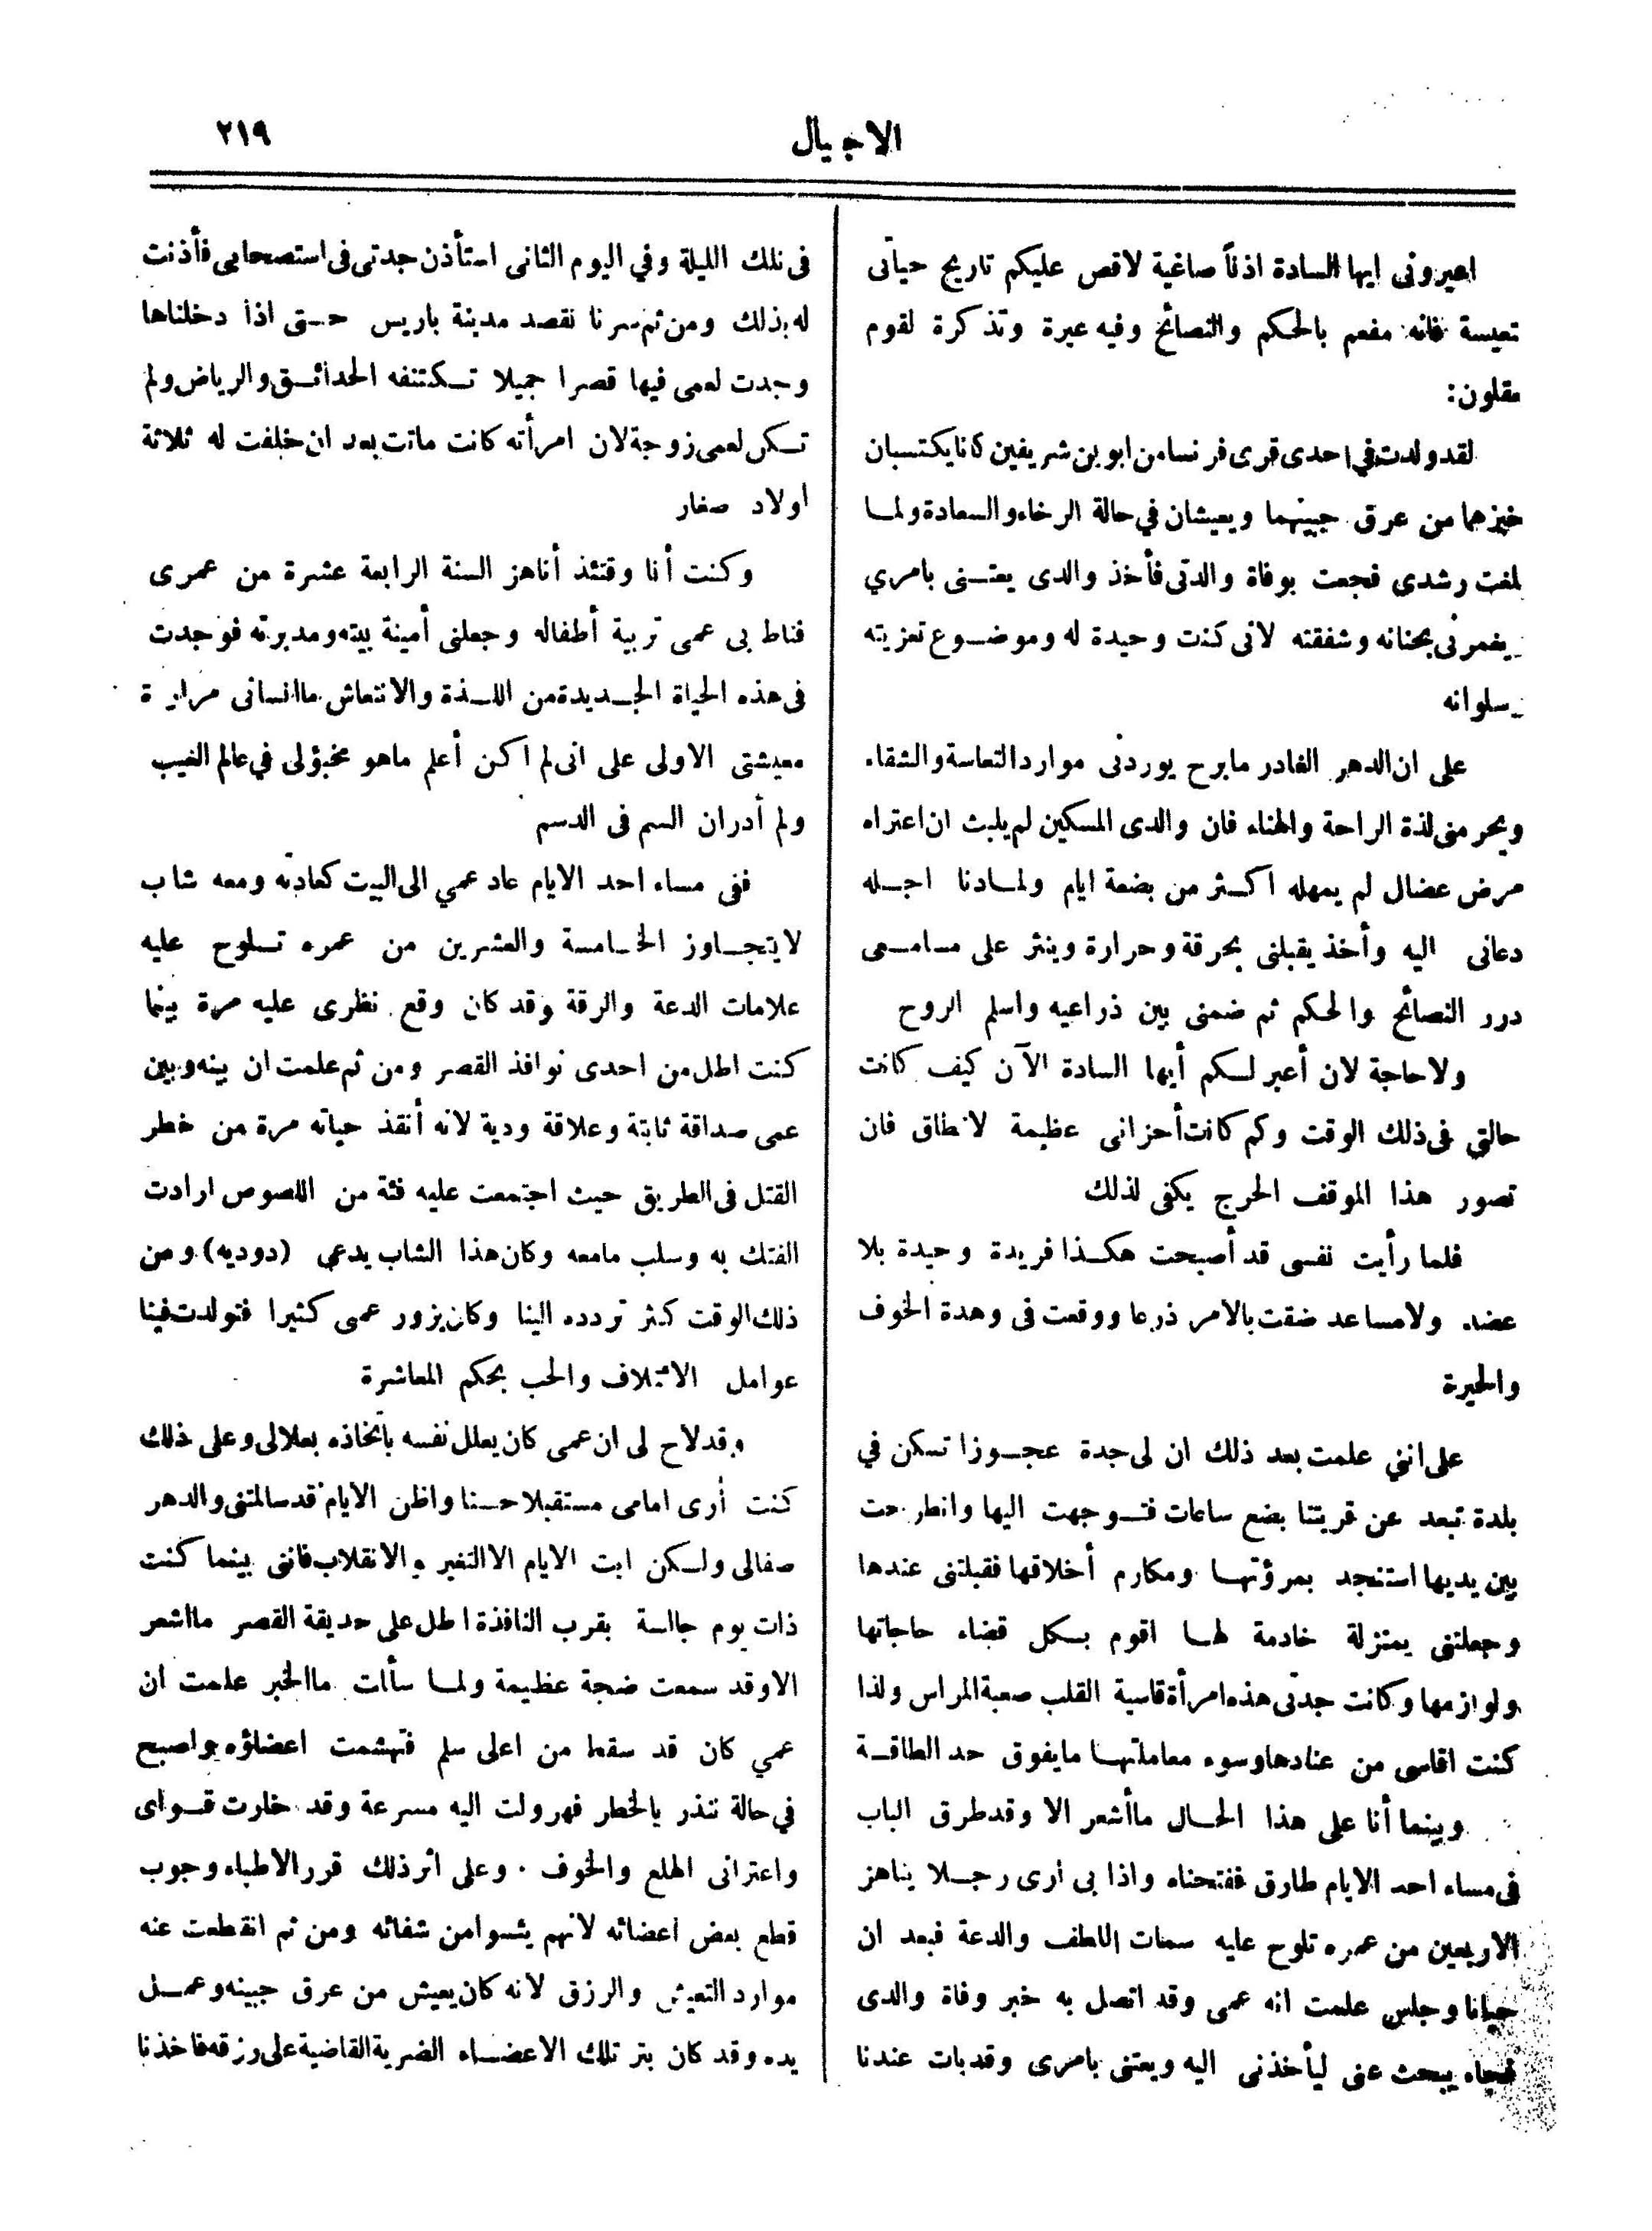 الاجيال
٢١٩
اعيروني ايها السادة اذناً صاغية لاقص عليكم تاريخ حياتى
تعيسة فانه مفعم بالحكم والنصائح وفيه عبرة وتذكرة لقوم
مقلون:
لقد ولدت في احدى قرى فرنسا من ابوين شريفين كانا يكتسبان
خبزهما من عرق جبينهما ويعيشان في حالة الرخاء والسعادة ولما
لمغت رشدى فجعت بوفاة والدتى فأخذ والدى يعتنى بامري
يغمرنى بحنانه وشفقته لانى كنت وحيدة له وموضوع تعزيته
سلوانه
على ان الدهر الغادر ما برح يوردنى موارد التعاسة والشقاء
ويحرمنى لذة الراحة والهناء فان والدى المسكين لم يلبث ان اعتراه
مرض عضال لم يمهله اكثر من بضعة ايام ولما دنا اجله
دعانى اليه وأخذ يقبلنى بحرقة وحرارة وينثر على مسامعى
درر النصائح والحكم ثم ضمنى بين ذراعيه واسلم الروح
ولا حاجة لان أعبر لكم أيها السادة الآن كيف كانت
حالتي فى ذلك الوقت وكم كانت أحزانى عظيمة لا تطاق فان
تصور هذا الموقف الحرج يكفى لذلك
فلما رأيت نفسى قد أصبحت هكذا فريدة وحيدة بلا
عضد ولا مساعد ضقت بالامر ذرعا ووقعت فى وهدة الخوف
والحيرة
على انني علمت بعد ذلك ان لى جدة عجوزا تسكن في
بلدة تبعد عن قريتنا بضع ساعات فتوجهت اليها وانطرحت
بين يديها استنجد بمرؤتها ومكارم أخلاقها فقبلتنى عندها
وجعلتنى بمنزلة خادمة لها اقوم بكل قضاء حاجاتها
ولوازمها وكانت جدتى هذه امرأة قاسية القلب صعبة المراس ولذا
كنت اقاسى من عنادها وسوء معاملتها ما يفوق حد الطاقة
وبينما أنا على هذا الحال ما أشعر الا وقد طرق الباب
فى مساء احد الايام طارق ففتحناه واذا بى ارى رجلا يناهز
الاربعين من عمره تلوح عليه سمات اللطف والدعة فبعد ان
حيانا وجلس علمت انه عمى وقد اتصل به خبر وفاة والدى
فجاء يبحث عنى ليأخذنى اليه ويعتنى بامرى وقد بات عندنا
فى تلك الليلة وفي اليوم الثانى استأذن جدتى فى استصحابى فأذنت
له بذلك ومن ثم سرنا نقصد مدينة باريس حتى اذا دخلناها
وجدت لعمى فيها قصرا جميلا تكتنفه الحدائق والرياض ولم
تكن لعمى زوجة لان امرأته كانت ماتت بعد ان خلفت له ثلاثة
اولاد صغار
وكنت أنا وقتئذ أناهز السنة الرابعة عشرة من عمرى
فناط بى عمى تربية أطفاله وجعلنى أمينة بيته ومدبرته فوجدت
فى هذه الحياة الجديدة من اللذة والانتعاش ما انسانى مرارة
معيشتى الاولى على انى لم اكن أعلم ما هو مخبؤلى في عالم الغيب
ولم أدر ان السم فى الدسم
ففى مساء احد الايام عاد عمي الى البيت كعادته ومعه شاب
لا يتجاوز الخامسة والعشرين من عمره تلوح عليه
علامات الدعة والرقة وقد كان وقع نظرى عليه مرة بينما
كنت اطل من احدى نوافذ القصر ومن ثم علمت ان بينه وبين
عمى صداقة ثابتة وعلاقة ودية لانه أنقذ حياته مرة من خطر
القتل فى الطريق حيث اجتمعت عليه فئة من اللصوص ارادت
الفتك به وسلب ما معه وكان هذا الشاب يدعى (دوديه) ومن
ذلك الوقت كثر تردده الينا وكان يزور عمى كثيرا فتولدت فينا
عوامل الائتلاف والحب بحكم المعاشرة
وقد لاح لى ان عمى كان يعلل نفسه باتخاذه بعلا لى وعلى ذلك
كنت أرى امامى مستقبلا حسنا واظن الايام قد سالمتنى والدهر
صفالى ولكن ابت الايام الا التغير والانقلاب فاننى بينما كنت
ذات يوم جالسة بقرب النافذة اطل على حديقة القصر ما اشعر
الا وقد سمعت ضجة عظيمة ولما سألت ما الخبر علمت ان
عمي كان قد سقط من اعلى سلم فتهشمت اعضاؤه واصبح
في حالة تنذر بالخطر فهرولت اليه مسرعة وقد خارت قواى
واعترانى الهلع والخوف . وعلى اثر ذلك قرر الاطباء وجوب
قطع بعض اعضائه لانهم يئسوا من شفائه ومن ثم انقطعت عنه
موارد التعيش والرزق لانه كان يعيش من عرق جبينه وعمل
يده وقد كان بتر تلك الاعضاء الضربة القاضية على رزقه فاخذنا